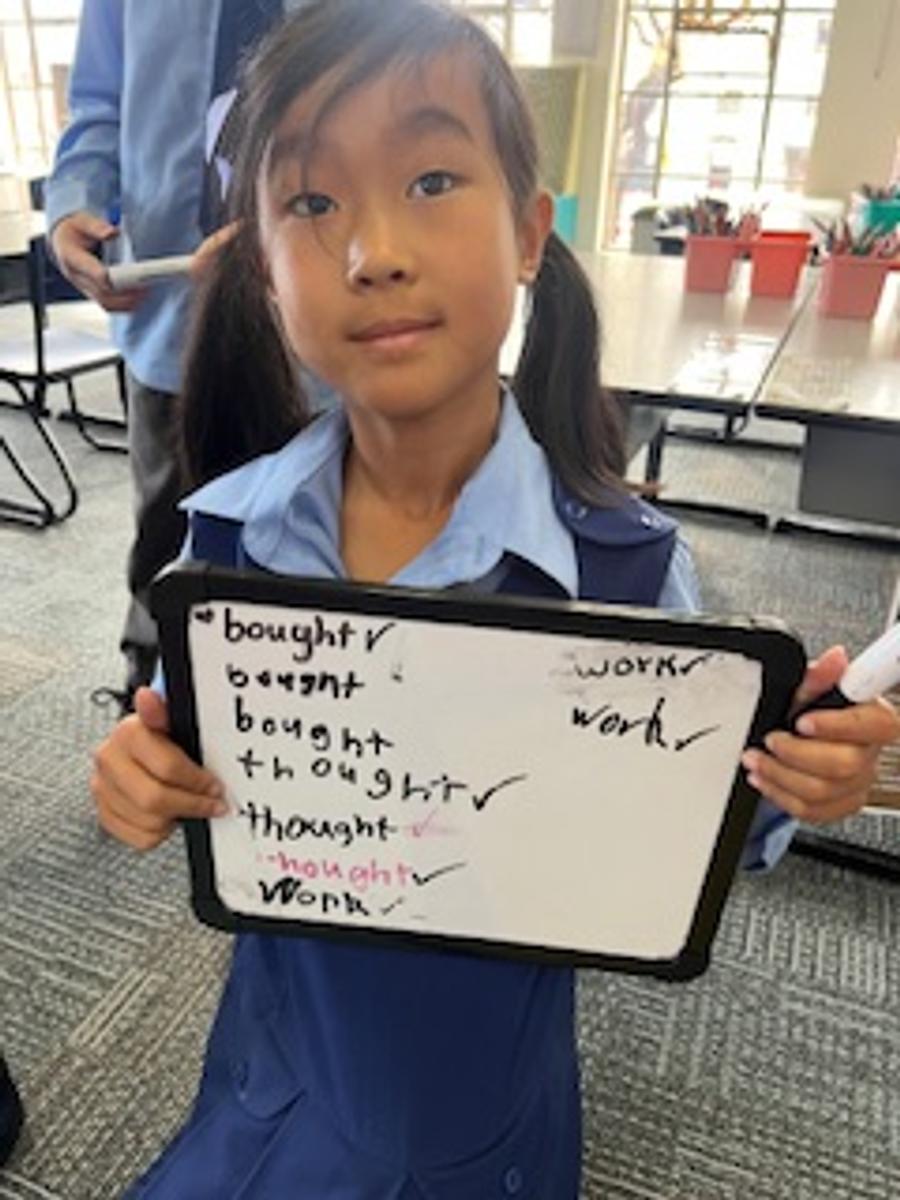 bought ✓
bought
bought
thought ✓
thought ✓
thought ✓
Work ✓
work ✓
work ✓